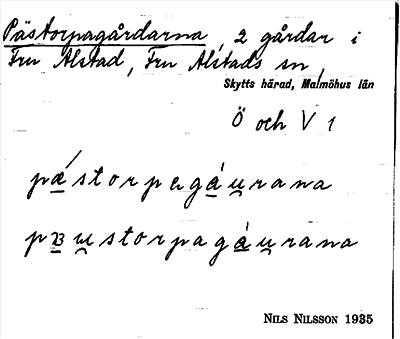 Pästorpagårdarna, 2 gårdar i
Fru Alstad, Fru Alstads sn,
Skytts härad, Malmöhus län
Ö och V 1
pǽstorpagá̱u̯rana
storpagá̱u̯rana
NILS NILSSON 1935